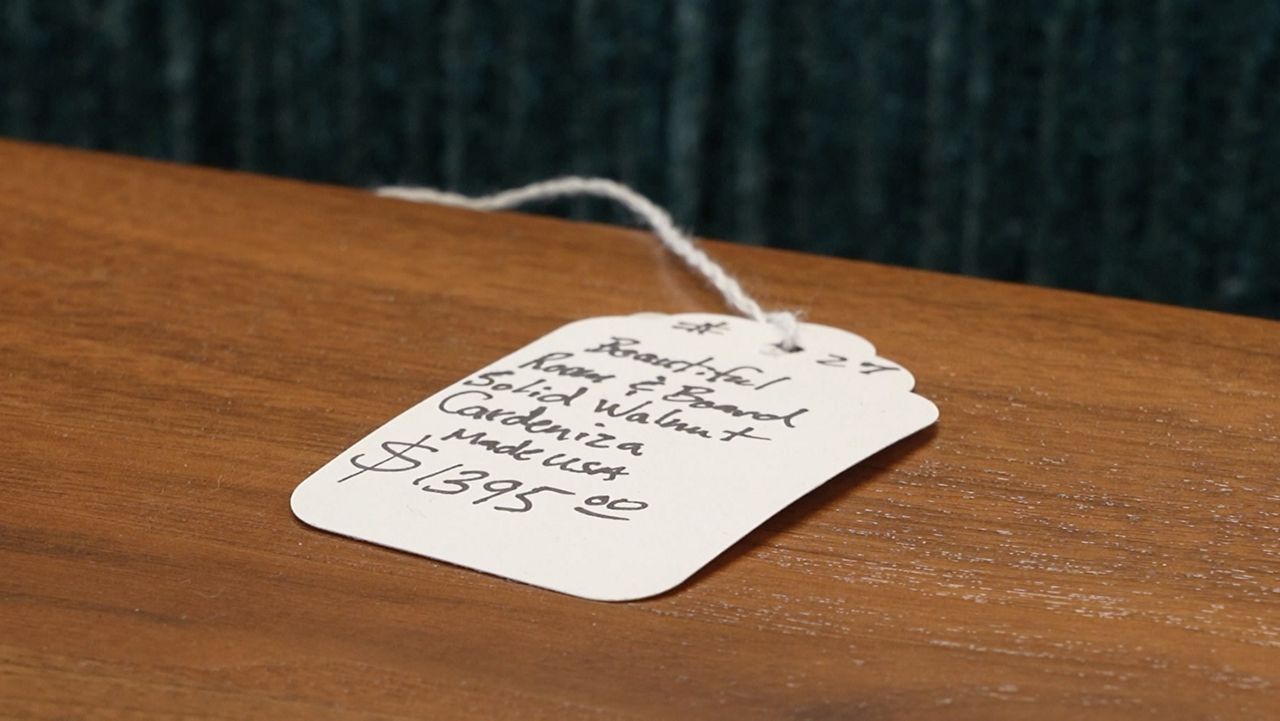 # 27
Beautiful
Room & Board
Solid Walnut
Cardeniza
Made USA
$1395 00